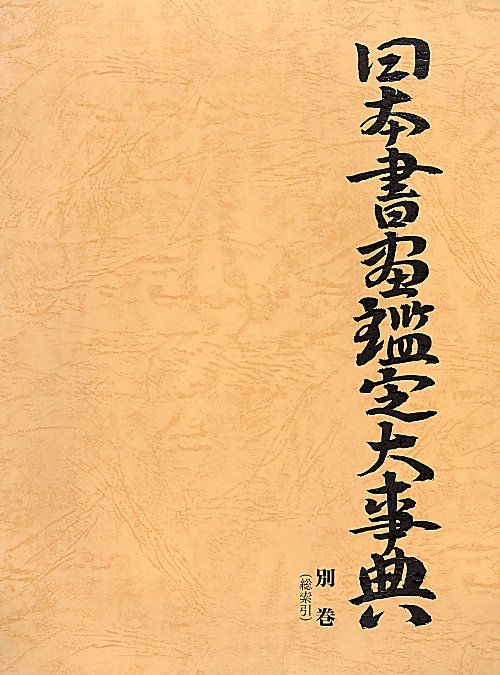 日本書画鑑定大事典
別巻
(総索引)